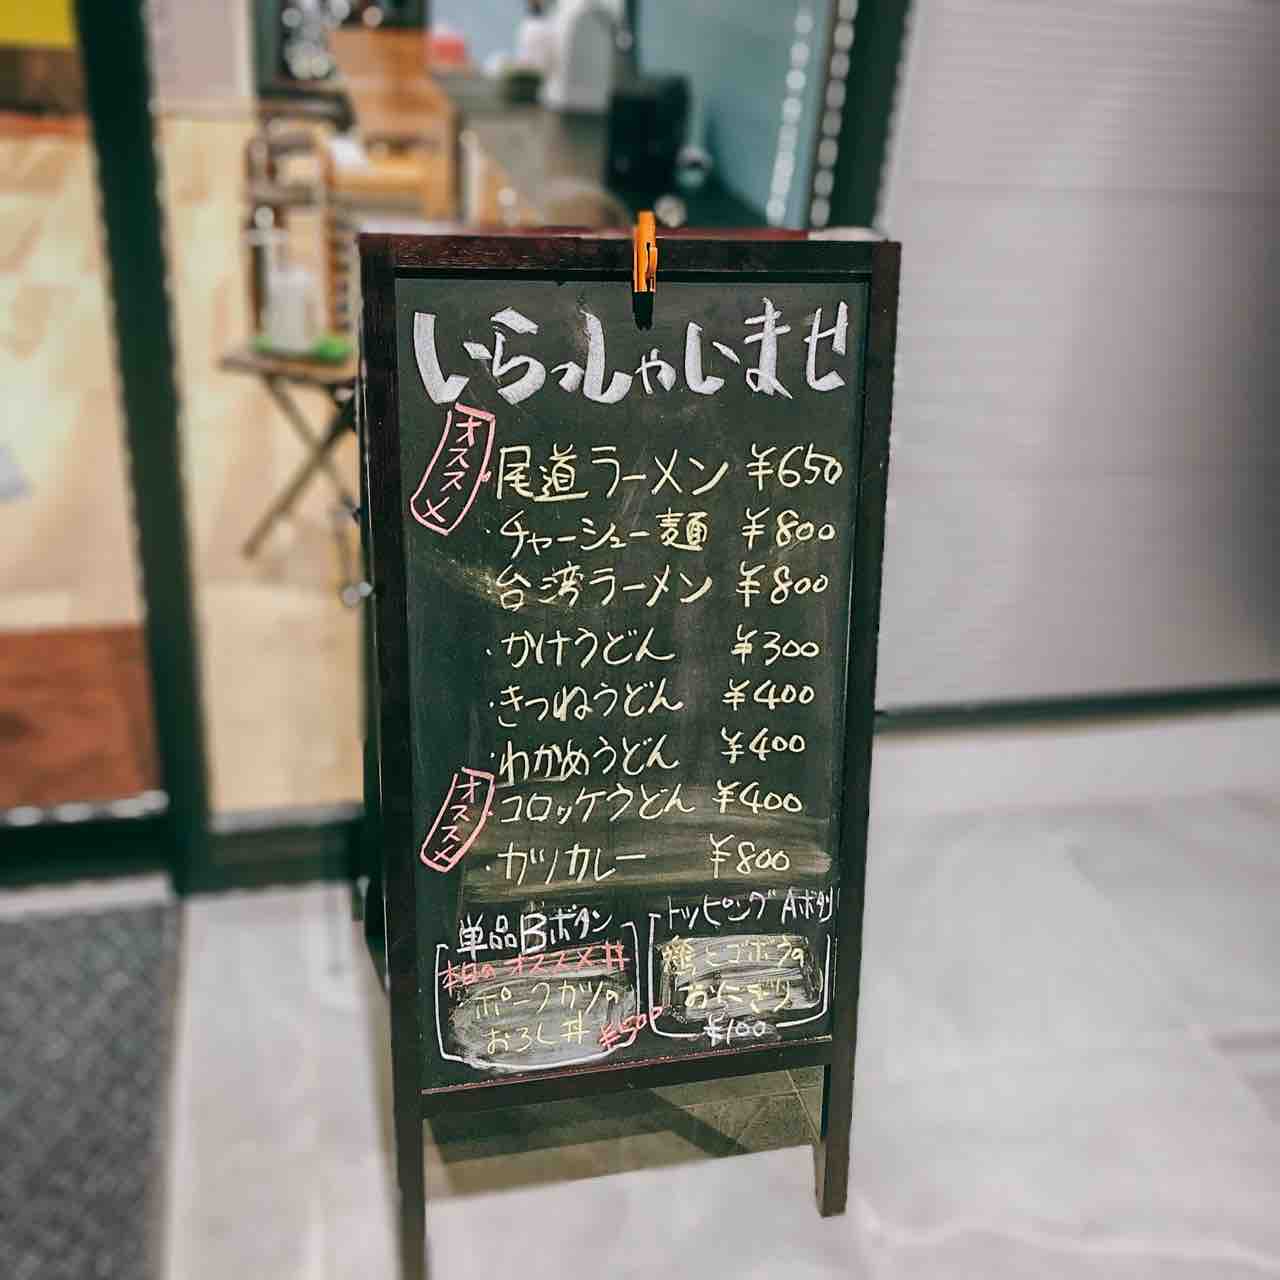 いらっしゃいませ
オススメ
尾道ラーメン ¥650
・チャーシュー麺 ¥800
台湾ラーメン ¥800
・かけうどん ¥300
・きつねうどん ¥400
・わかめうどん ¥400
オススメ
・コロッケうどん ¥400
・カツカレー ¥800
単品Bボタン
本日のオススメ丼
ポークカツの
おろし丼 ¥500
トッピングAボタン
鶏とゴボウの
おにぎり
¥100